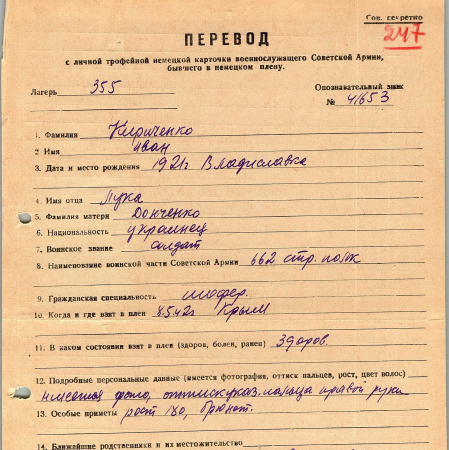 Сов. секретно
247
ПЕРЕВОД
с личной трофейной немецкой карточки военнослужащего Советской Армии,
бывшего в немецком плену.
Лагерь 355
Опознавательный знак
№ 41653
1. Фамилия Кириченко
2 Имя Иван
3. Дата и место рождения 1921г Владиславка
4. Имя отца Лука
5. Фамилия матери Донченко
6. Национальность украинец
7. Воинское звание солдат
8. Наименование воинской части Советской Армии 662 стр. полк
9. Гражданская специальность шофер.
10. Когда и где взят в плен 8.5.42г Крым
11. В каком состоянии взят в плен (здоров, болен, ранен) Здоров.
12. Подробные персональные данные (имеется фотография, оттиск пальцев, рост, цвет волос)
имеется фото, оттиск указ. пальца правой руки
13. Особые приметы рост 180, брюнет.
14. Ближайшие родственники и их местожительство